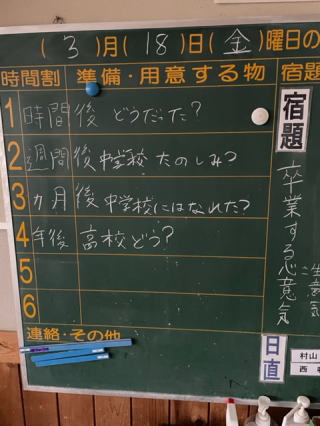 (3)月(18)日(金)曜日の
時間割 準備・用意する物 宿題
1 時間後 どうだった?
2 週間後 中学校 たのしみ?
3 ヵ月後 中学校にはなれた?
4 年後 高校どう?
5
6
連絡・その他
宿題
卒業する心意気
日直
村山